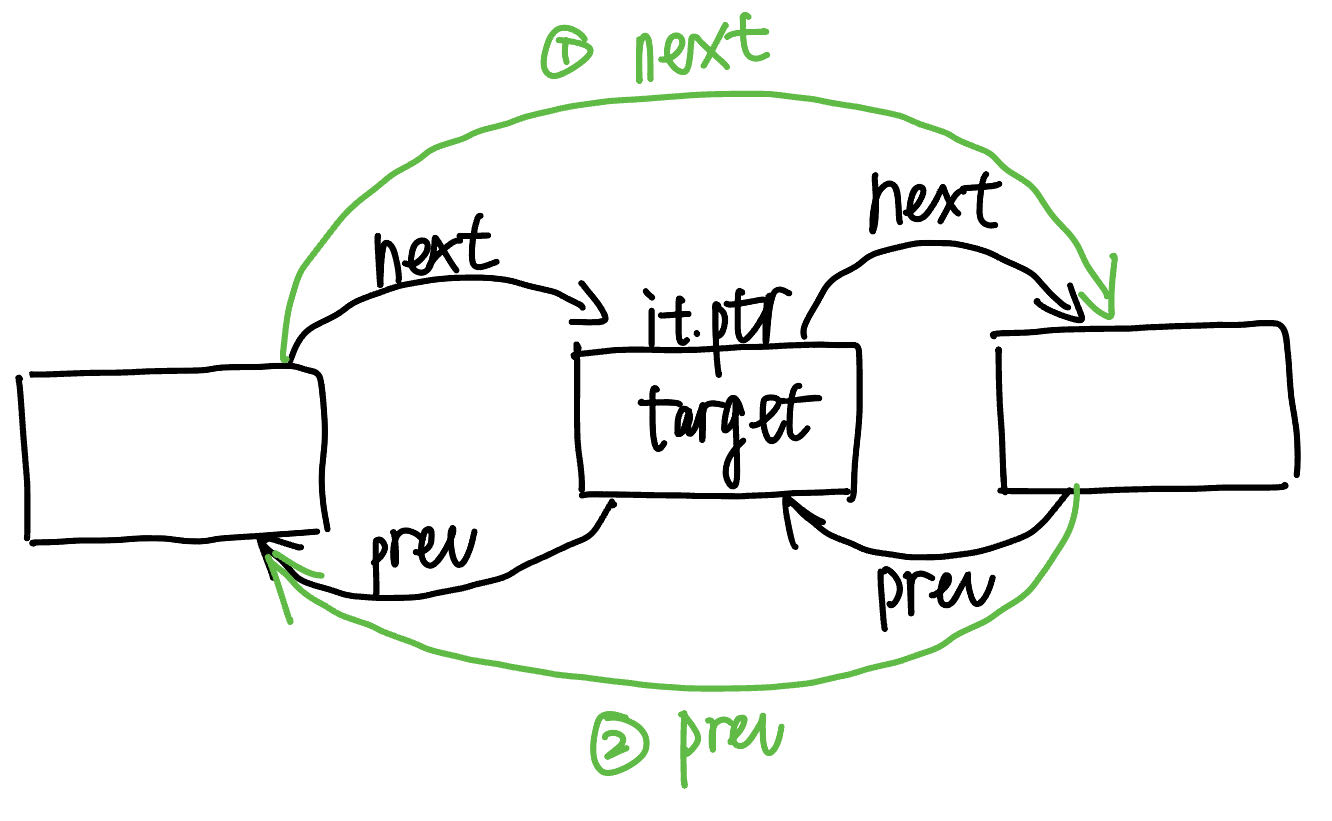 ① next
next
next
it.ptr
target
prev
prev
② prev